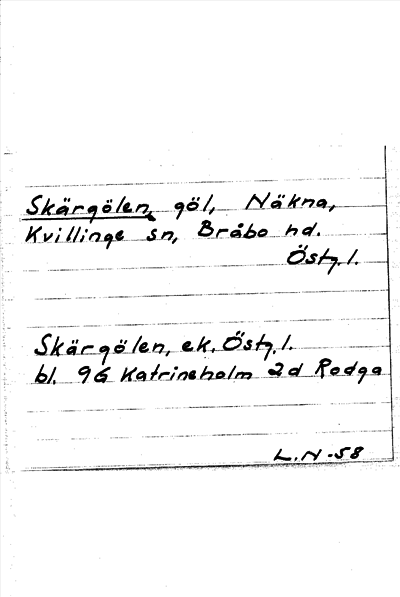 Skärgölen, göl, Näkna,
Kvillinge sn, Bråbo hd.
Östg.l.
Skärgölen, ek. Östg.l.
bl. 9G Katrineholm 2d Rodga
L.N-58